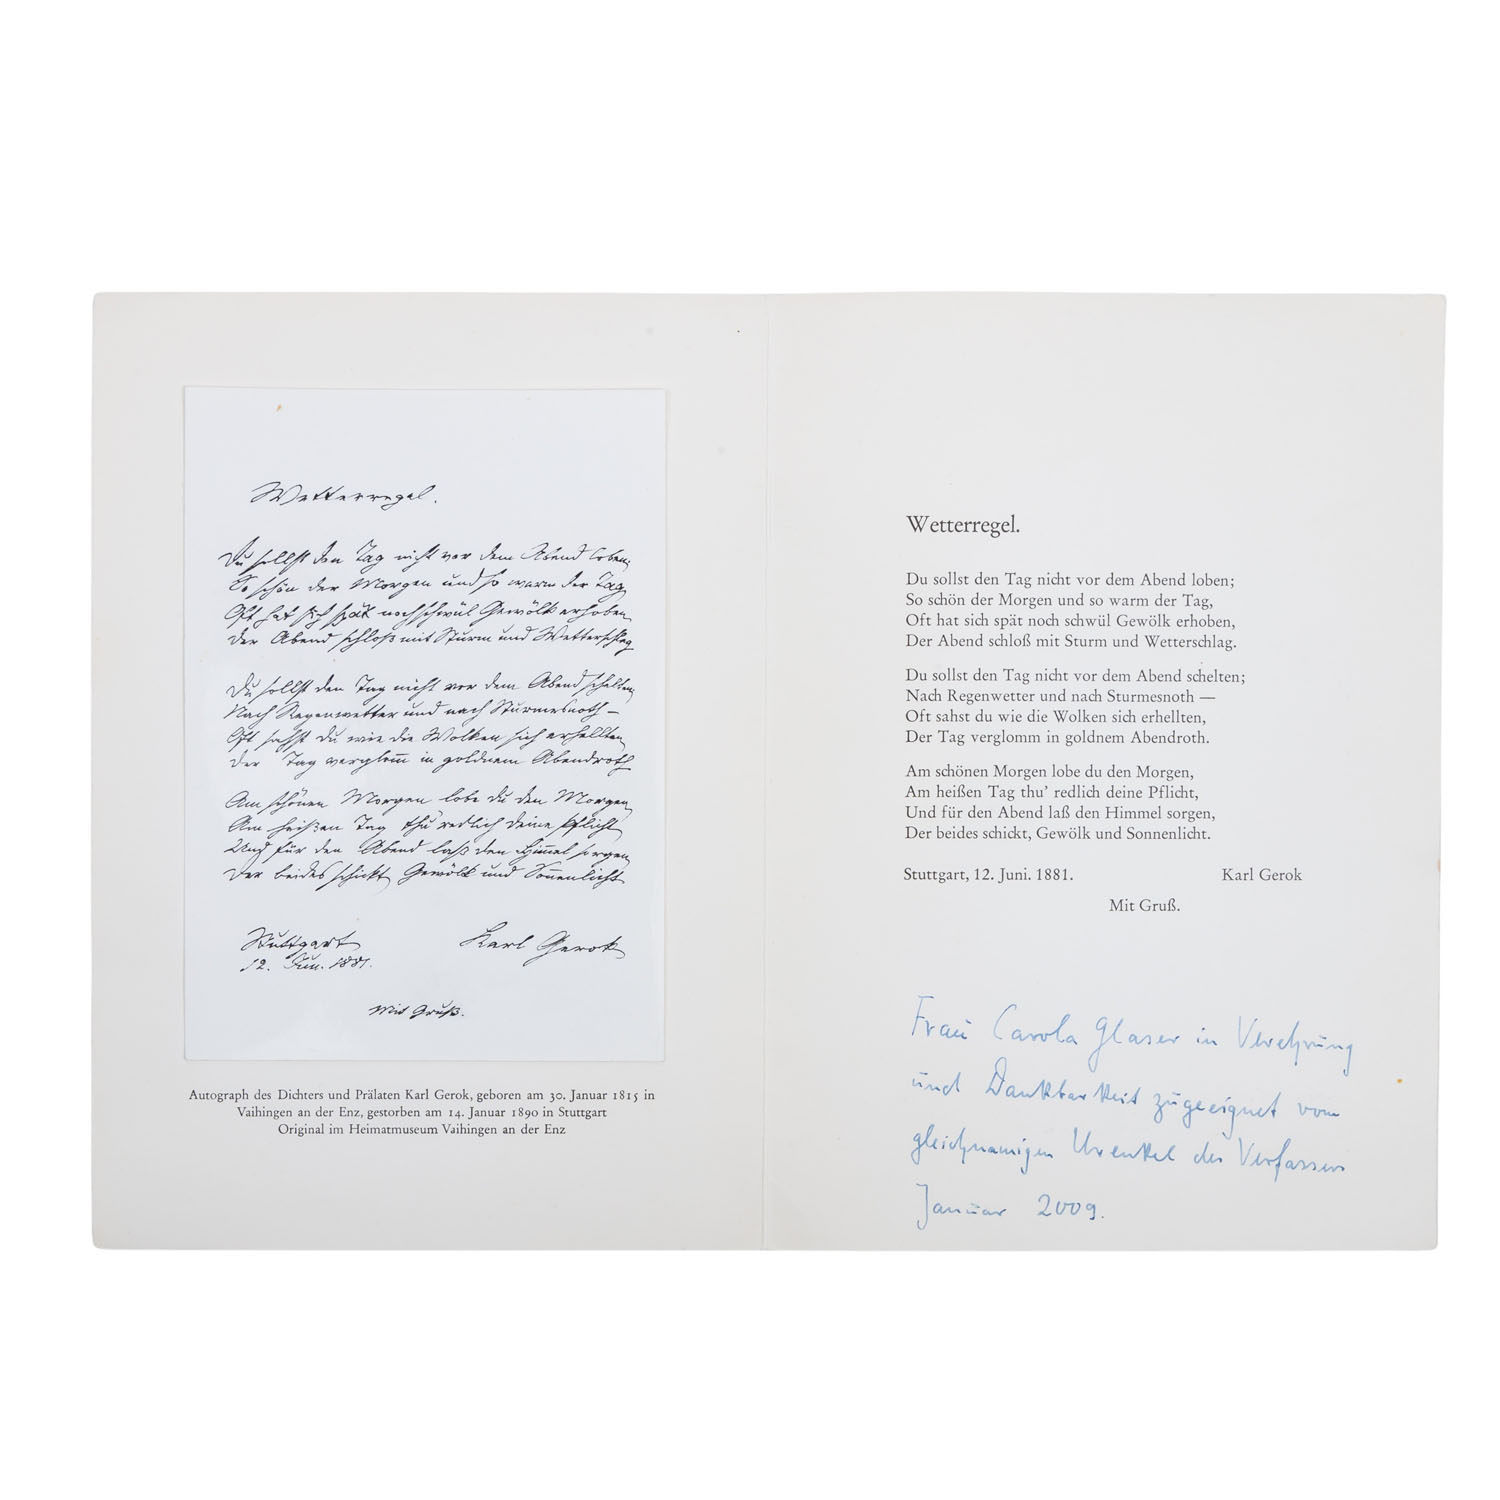 Wetterregel.
Du sollst den Tag nicht vor dem Abend loben;
So schön der Morgen und so warm der Tag,
Oft hat sich spät noch schwül Gewölk erhoben,
Der Abend schloß mit Sturm und Wetterschlag
Du sollst den Tag nicht vor dem Abend schelten,
Nach Regenwetter und nach Sturmesnoth –
Oft sahst du wie die Wolken sich erhellten,
Der Tag verglom̅ in goldnem Abendroth
Am schönen Morgen lobe du den Morgen,
Am heißen Tag thu' redlich deine Pflicht,
Und für den Abend laß den Him̅el sorgen,
Der beides schickt, Gewölk und Son̅enlicht
Stuttgart Karl Gerok
12. Jun. 1881.
Mit Gruß.
Autograph des Dichters und Prälaten Karl Gerok, geboren am 30. Januar 1815 in
Vaihingen an der Enz, gestorben am 14. Januar 1890 in Stuttgart
Original im Heimatmuseum Vaihingen an der Enz
Wetterregel.
Du sollst den Tag nicht vor dem Abend loben;
So schön der Morgen und so warm der Tag,
Oft hat sich spät noch schwül Gewölk erhoben,
Der Abend schloß mit Sturm und Wetterschlag.
Du sollst den Tag nicht vor dem Abend schelten;
Nach Regenwetter und nach Sturmesnoth —
Oft sahst du wie die Wolken sich erhellten,
Der Tag verglomm in goldnem Abendroth.
Am schönen Morgen lobe du den Morgen,
Am heißen Tag thu' redlich deine Pflicht,
Und für den Abend laß den Himmel sorgen,
Der beides schickt, Gewölk und Sonnenlicht.
Stuttgart, 12. Juni. 1881. Karl Gerok
Mit Gruß.
Frau Carola Glaser in Verehrung
und Dankbarkeit zugeeignet vom
gleichnamigen Urenkel des Verfassers
Januar 2009.